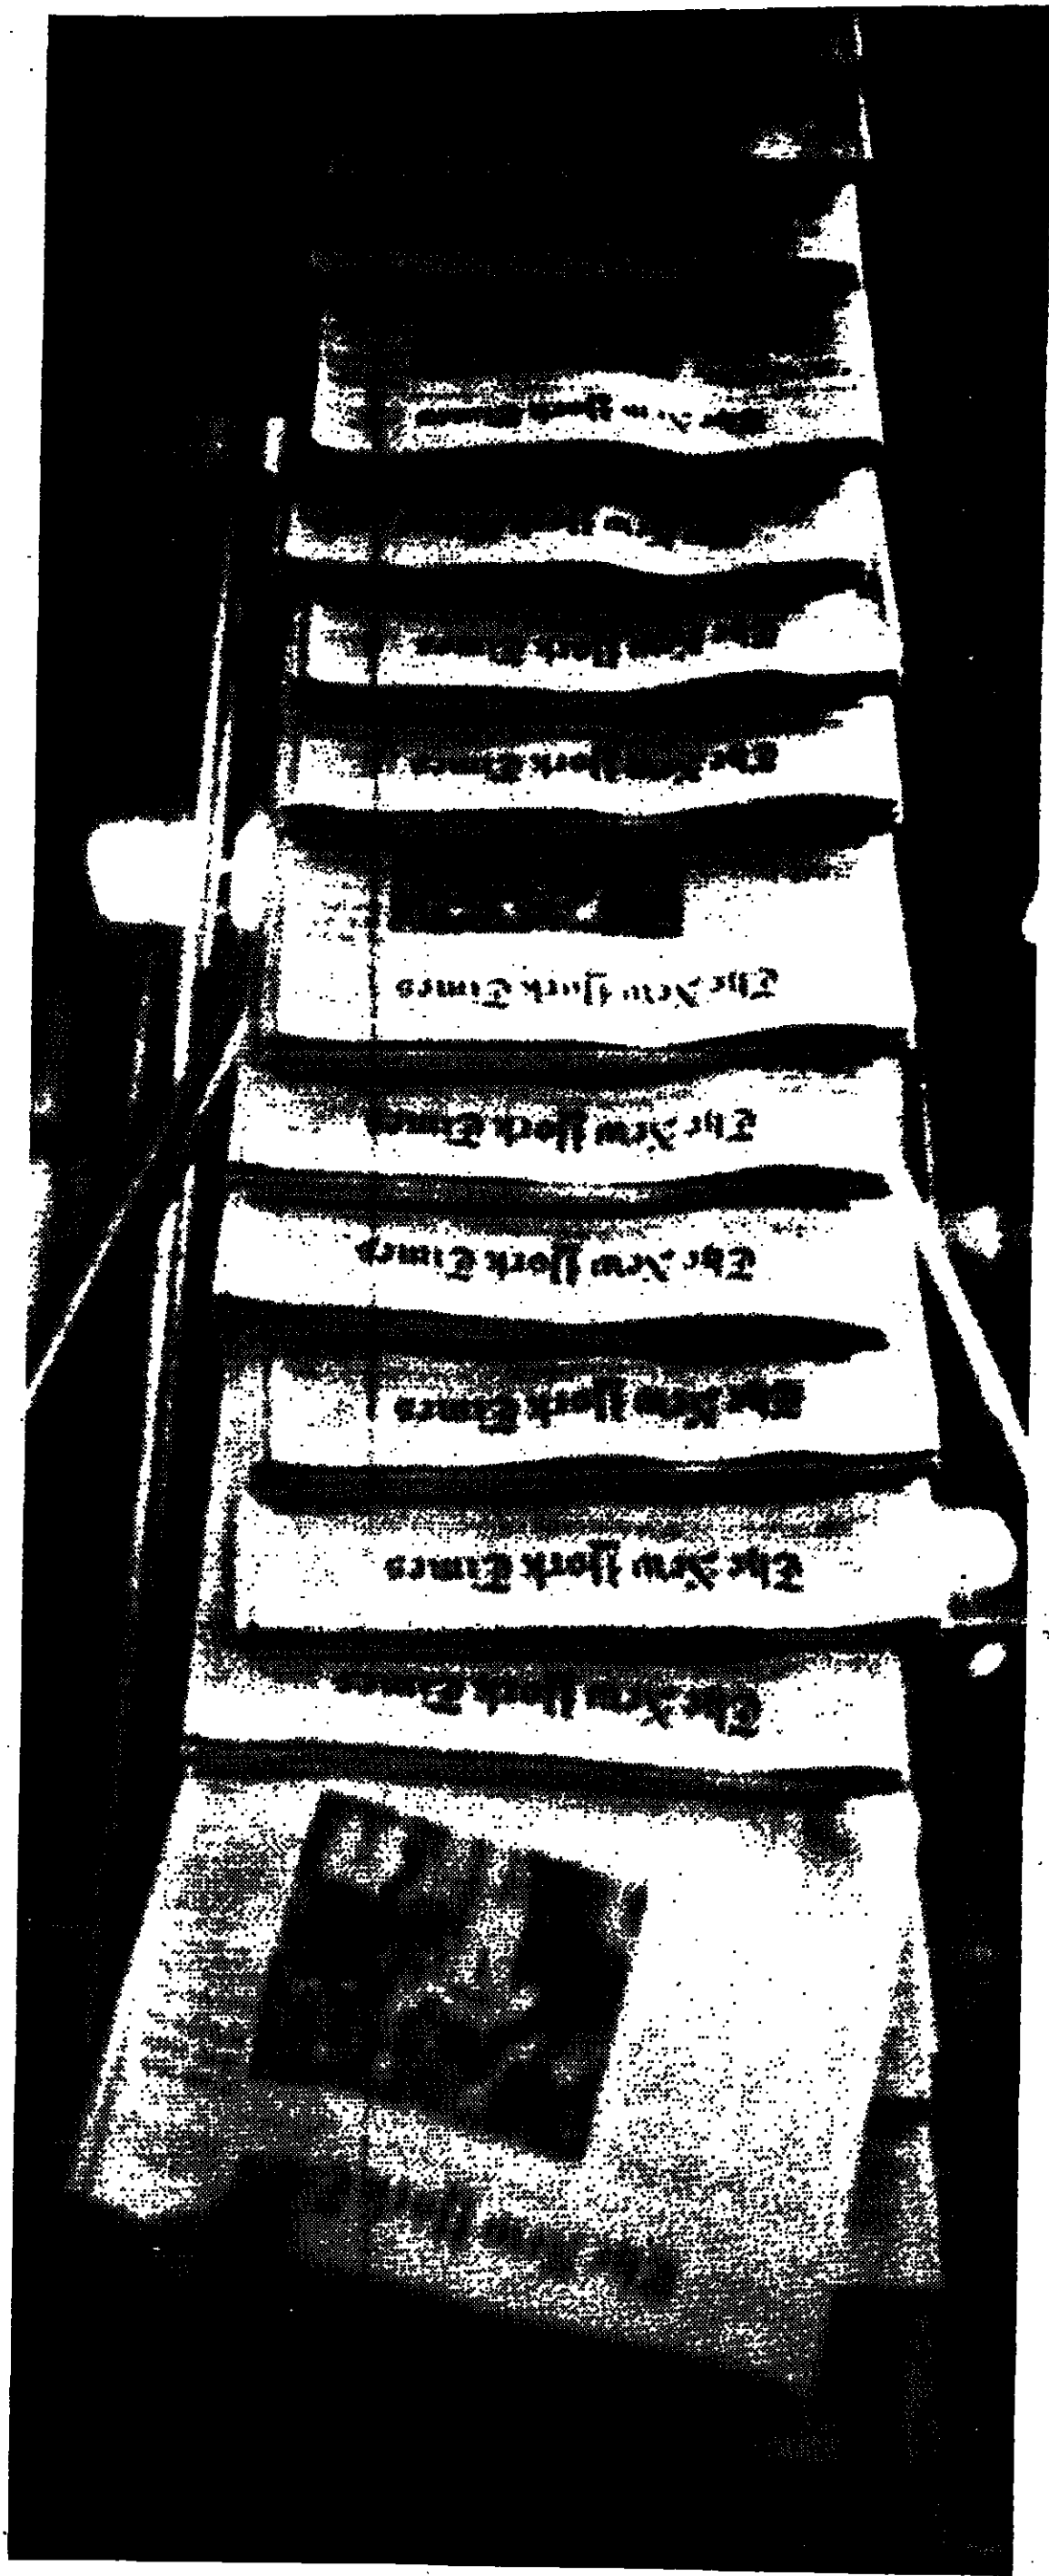 The New York
The New York Times
The New York Times
The New York Times
The New York Times
The New York Times
The New York Times
The New York Times
The New York Times
New
The New York Times